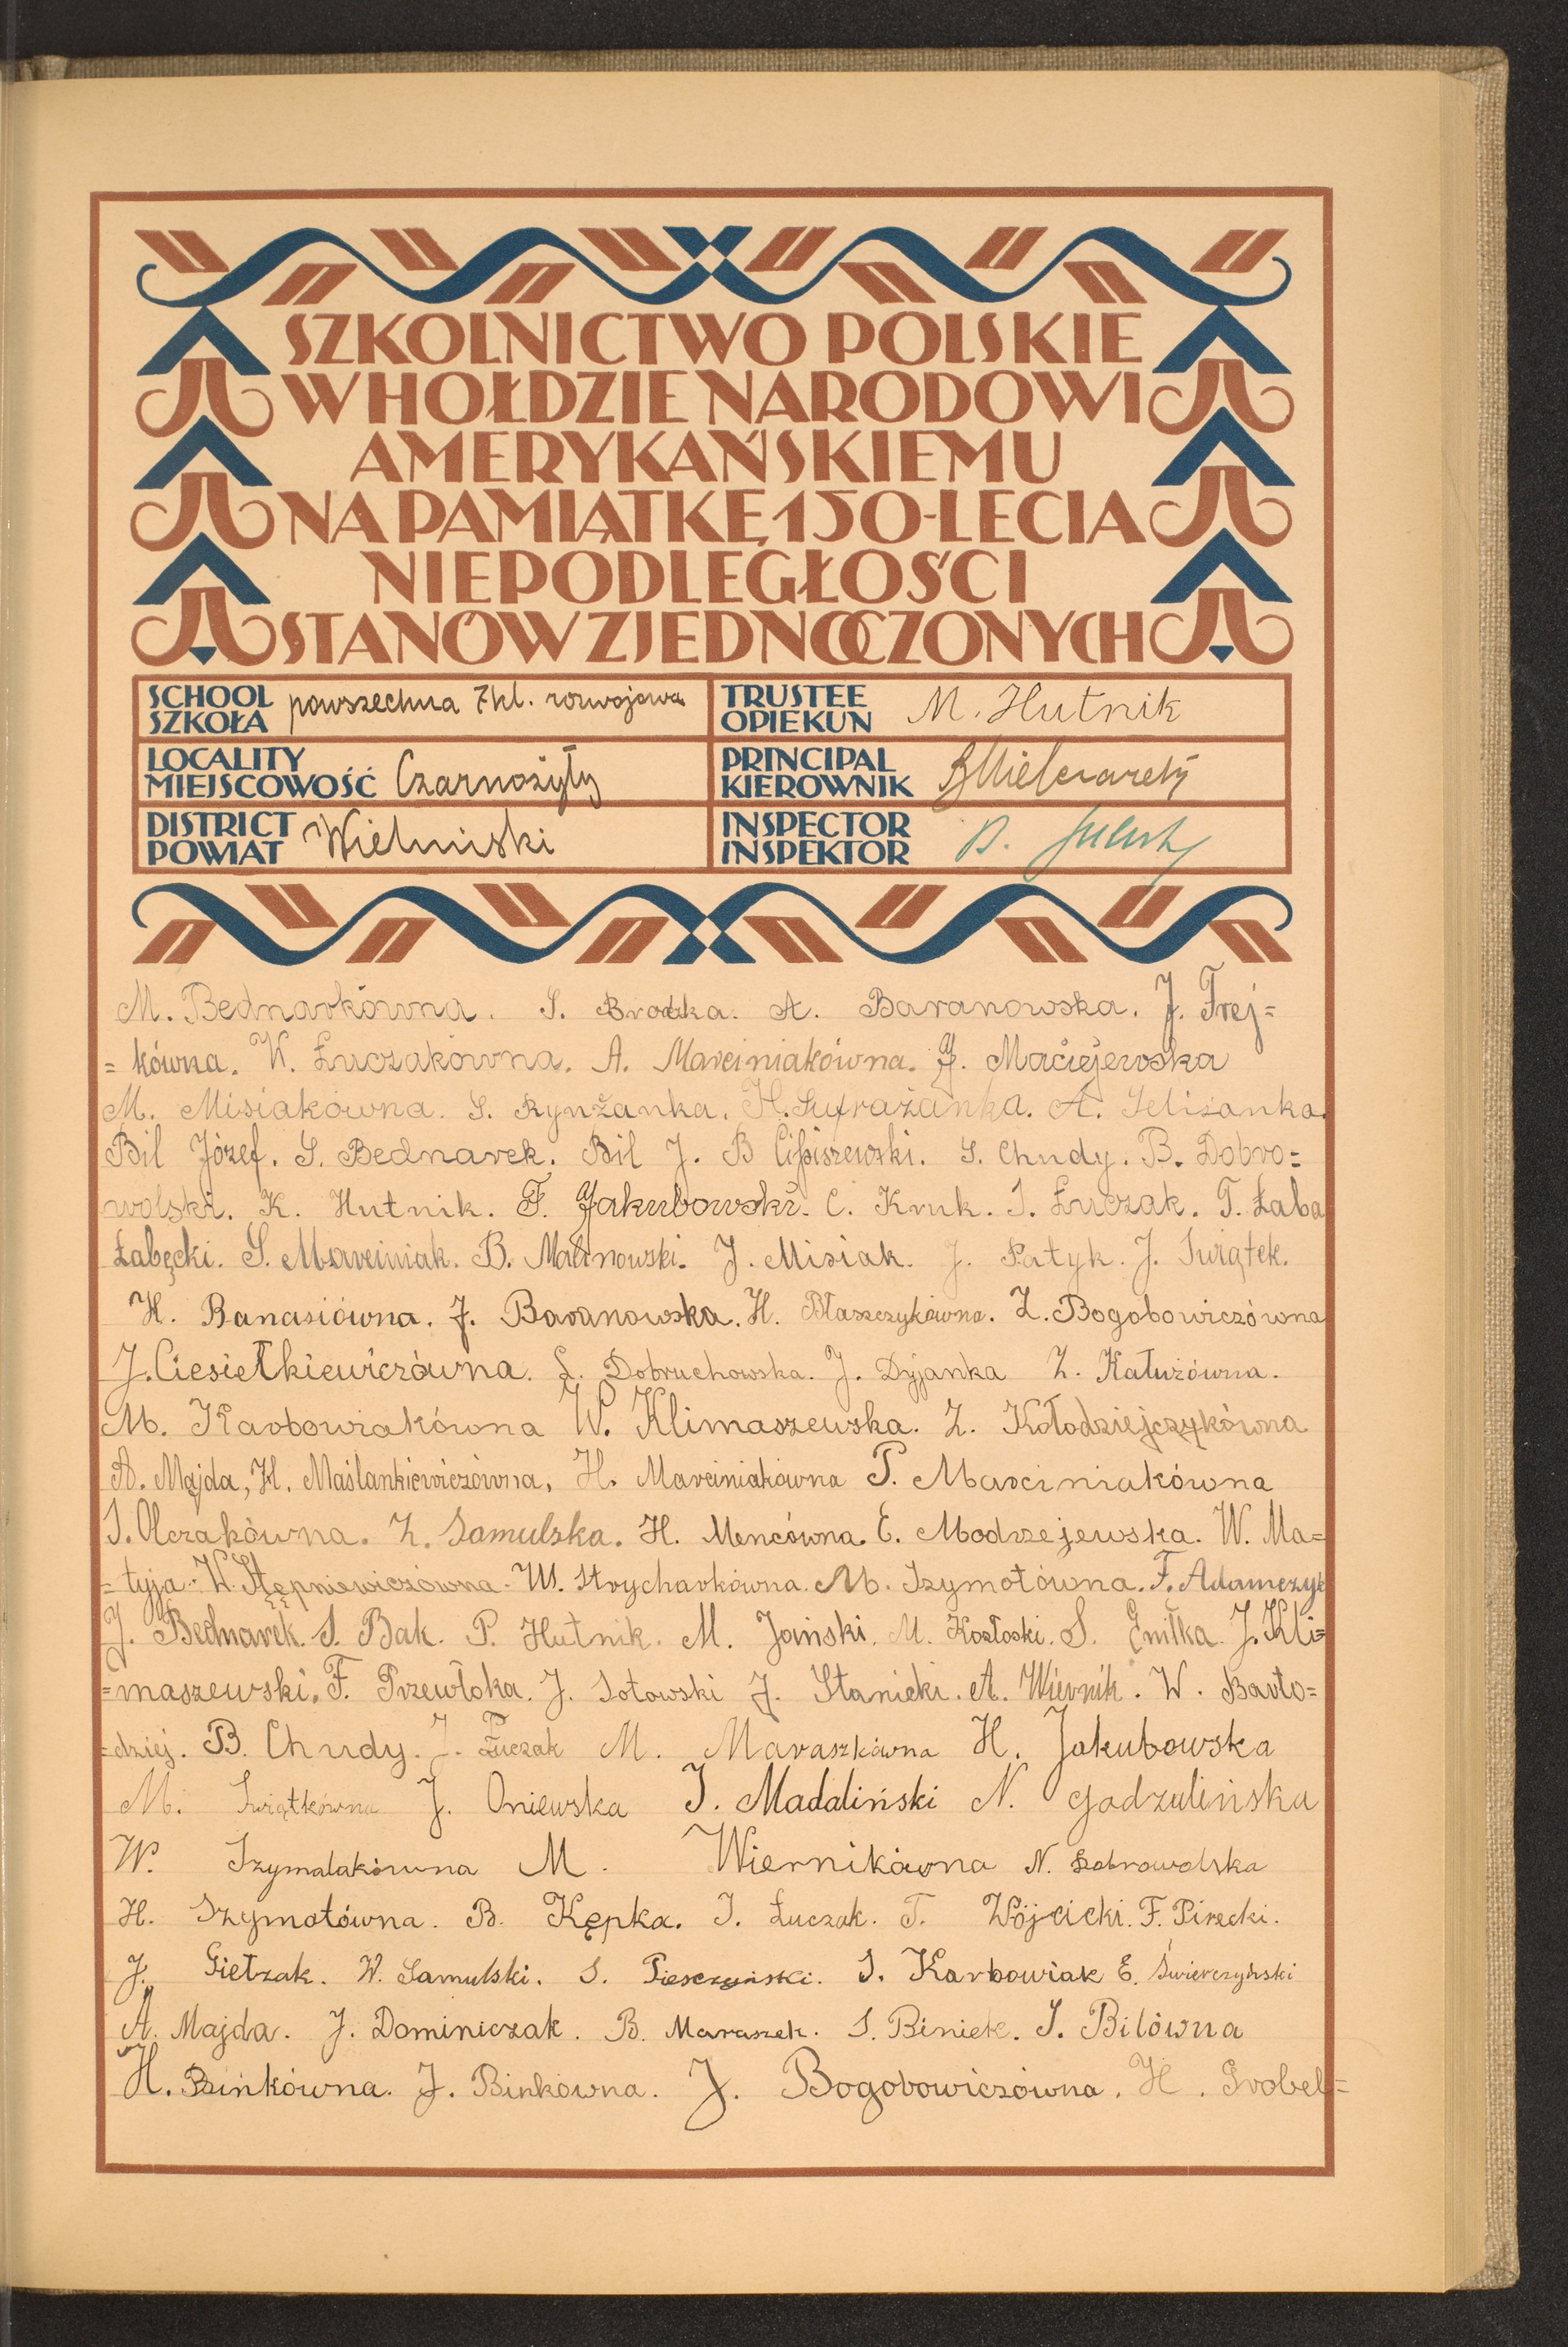 SZKOLNICTWO POLSKIE
W HOŁDZIE NARODOWI
AMERYKAŃSKIEMU
NA PAMIĄTKĘ 150-LECIA
NIEPODLEGŁOŚCI
STANÓW ZJEDNOCZONYCH
SCHOOL SZKOŁA powszechna 7kl. rozwojowa
TRUSTEE OPIEKUN M. Hutnik
LOCALITY MIEJSCOWOŚĆ Czarnożyły
PRINCIPAL KIEROWNIK
DISTRICT POWIAT Wieluński
INSPECTOR INSPEKTOR
M. Bednarkówna. S. Brodzka. A. Baranowska. J. Frej=
=kówna. K. Łuczakówna. A. Marciniakówna. J. Maciejewska
M. Misiakówna. S. Rynżanka. H. Sufrażanka. A. Selizanka.
Bil Józef. S. Bednarek. Bil J. B Cipiszewski. S. Chudy. B. Dobro=
wolski. K. Hutnik. F. Jakubowski. C. Kruk. I. Łuczak. T. Łaba
Łabęcki. S. Marciniak. B. Malinowski. J. Misiak. J. Patyk. J. Swiątek.
H. Banasiówna. J. Baranowska. H. Błaszczykówna. Z. Bogobowiczówna
J. Ciesiełkiewiczówna. L. Dobruchowska. J. Dyjanka Z. Kałużówna.
M. Karbowiakówna W. Klimaszewska. Z. Kołodziejczykówna
A. Majda, H. Maślankiewiczówna, H. Marciniakówna P. Marciniakówna
I. Olczakówna. Z. Samulska. H. Mencówna. E. Modrzejewska. W. Ma=
=tyja. W. Stępniewiczówna. W. Strycharkówna. M. Szymotówna. F. Adamczyk
J. Bednarek. S. Bak. P. Hutnik. M. Jański. M. Kozłoski. S. Gmiłka. J. Kli=
=maszewski. F. Przewłoka. J. Sotowski J. Stanicki. A. Wiernik. W. Barto=
=dziej. B. Chudy. J. Łuczak M. Maraszkówna H. Jakubowska
M. Swiątkówna J. Oniewska I. Madaliński N. Gadzulińska
W. Szymalakówna M. Wiernikówna N. Dobrowolska
H. Szymotówna. B. Kępka. I. Łuczak. T. Wójcicki. F. Pirecki.
J. Giełzak. W. Samulski. S. Piesczyński. S. Karbowiak E. Świerczyński
A. Majda. J. Dominiczak. B. Maraszek. S. Biniek. S. Bilówna
H. Binkówna. J. Binkówna. J. Bogobowiczówna. H. Grobel=